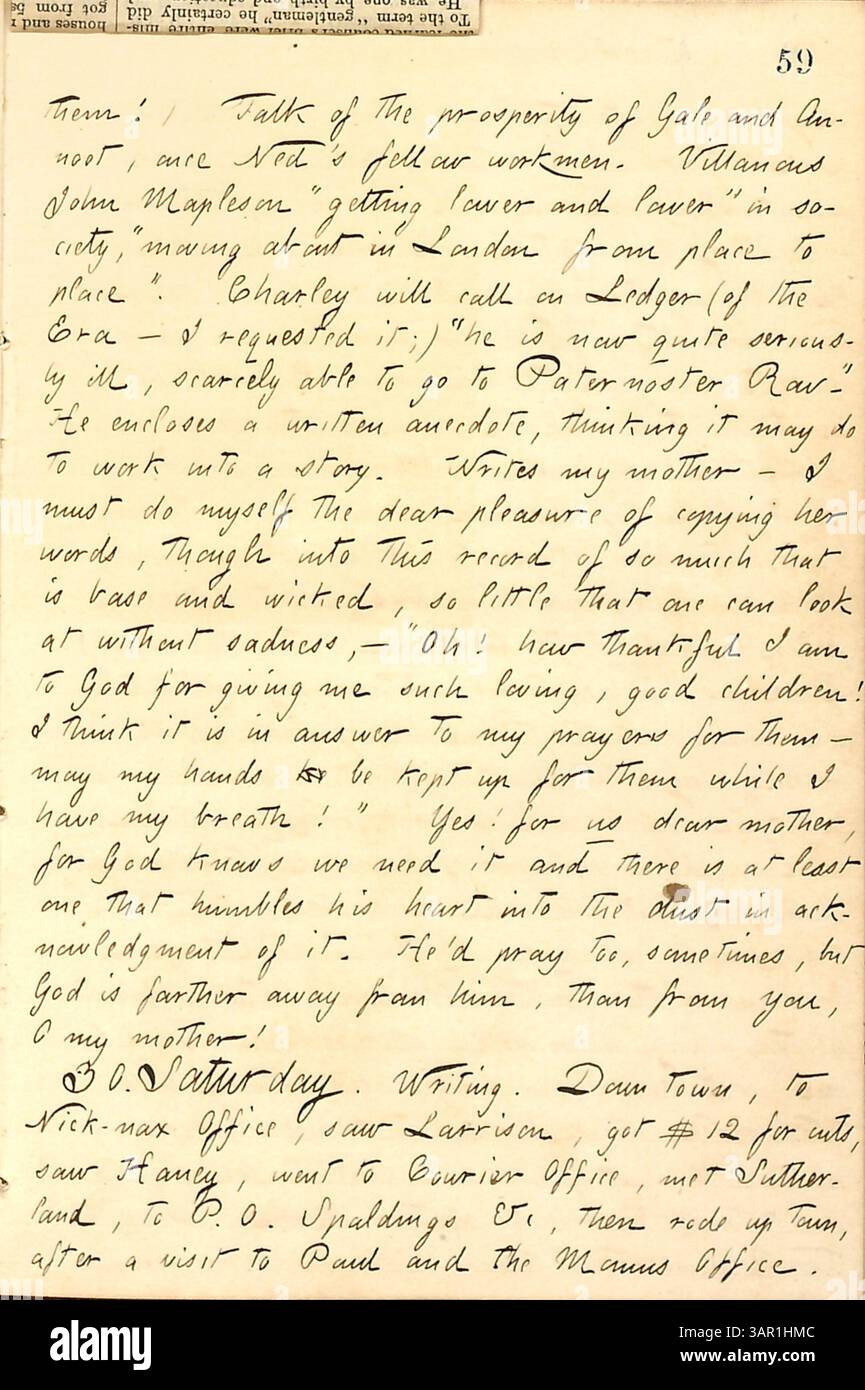 houses and
got from 5s
To the term "gentleman" he certainly did
59
them! Talk of the prosperity of Gale and An-
noot, once Ned's fellow workmen. Villanous
John Mapleson "getting lower and lower" in so-
ciety, "moving about in London from place to
place". Charley will call on Ledger (of the
Era — I requested it;) "he is now quite serious-
ly ill, scarcely able to go to Paternoster Row".
He encloses a written anecdote, thinking it may do
to work into a story. Writes my mother — I
must do myself the dear pleasure of copying her
words, though into this record of so much that
is base and wicked, so little that one can look
at without sadness, — "Oh! how thankful I am
to God for giving me such loving, good children!
I think it is in answer to my prayers for them —
may my hands be kept up for them while I
have my breath!" Yes! for us dear mother,
for God knows we need it and there is at least
one that humbles his heart into the dust in ack-
nowledgment of it. He'd pray too, sometimes, but
God is farther away from him, than from you,
O my mother!
30. Saturday. Writing. Down town, to
Nick-nax Office, saw Larrison, got $12 for cuts,
saw Haney, went to Courier Office, met Suther-
land, to P. O. Spaldings &c, then rode up town,
after a visit to Paul and the Momus Office.
alamy
Image ID: 3AR1HMC
www.alamy.com